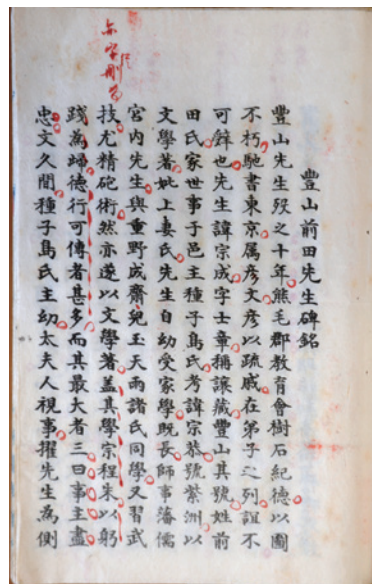 豐山前田先生碑銘
豐山先生歿之十年熊毛郡教育會樹石紀德以圖
不朽馳書東京属彦文彦以疏戚在弟子之列誼不
可辭也先生諱宗成字士章稱讓藏豐山其號姓前
田氏家世事于邑主種子島氏考諱宗恭號紫洲以
文學著妣上妻氏先生自幼受家學既長師事藩儒
宮内先生與重野成齋兒玉天雨諸氏同學又習武
技尤精砲術然亦遂以文學著盖其學宗程朱以躬
踐為歸德行可傳者甚多而其最大者三曰事主盡
忠文久間種子島氏主幼太夫人視事擢先生為側
亦字刪